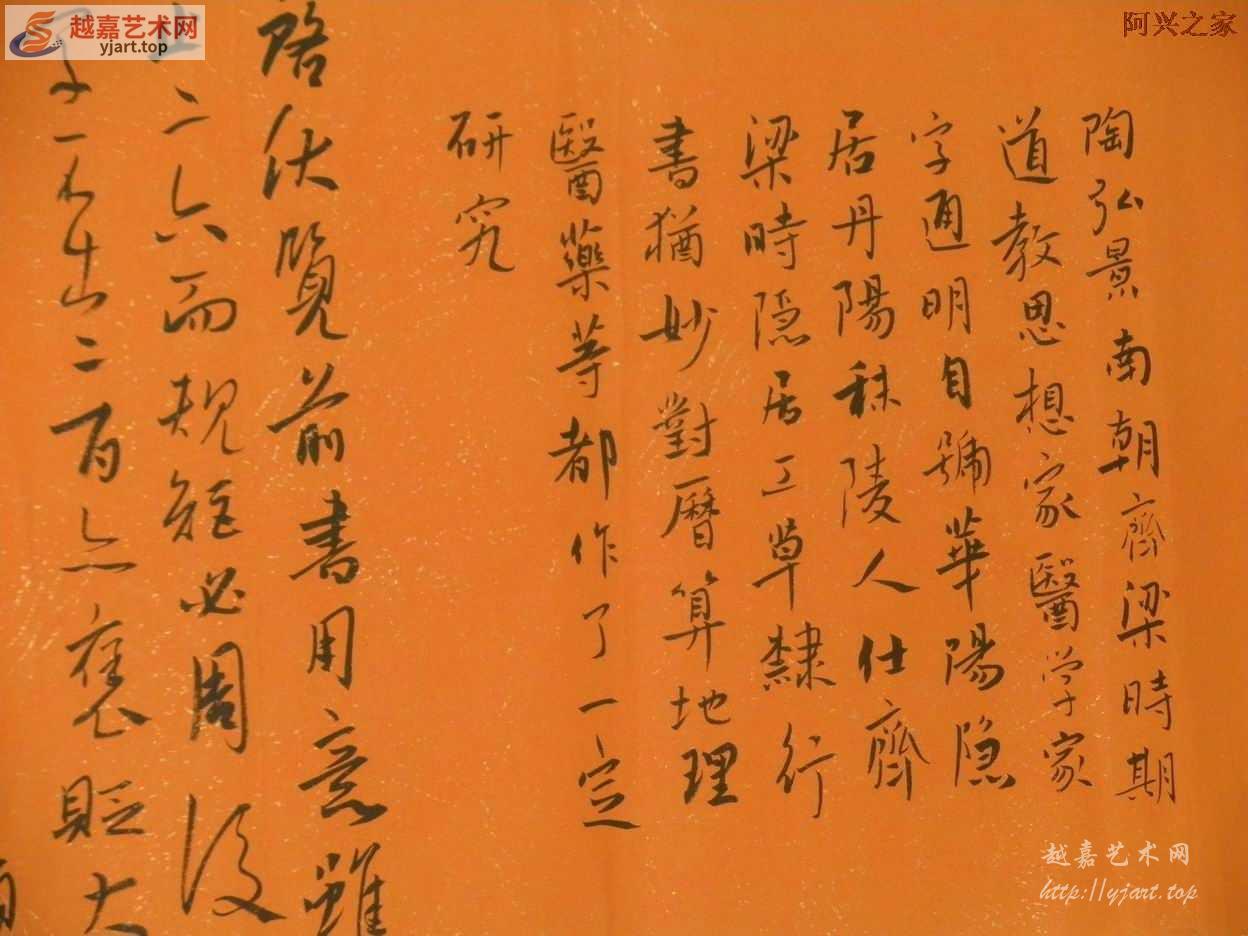 越嘉艺术网
yjart.top
阿兴之家
陶弘景南朝齊梁時期
道教思想家醫学家
字通明自號華陽隐
居丹陽秣陵人仕齊
梁時隐居工草隸行
書猶妙對曆算地理
醫藥等都作了一定
研究
啓伏覽前書用意雖
止二六而規矩必周後
一不出二百亦褒貶大
越嘉艺术网
http://yjart.top